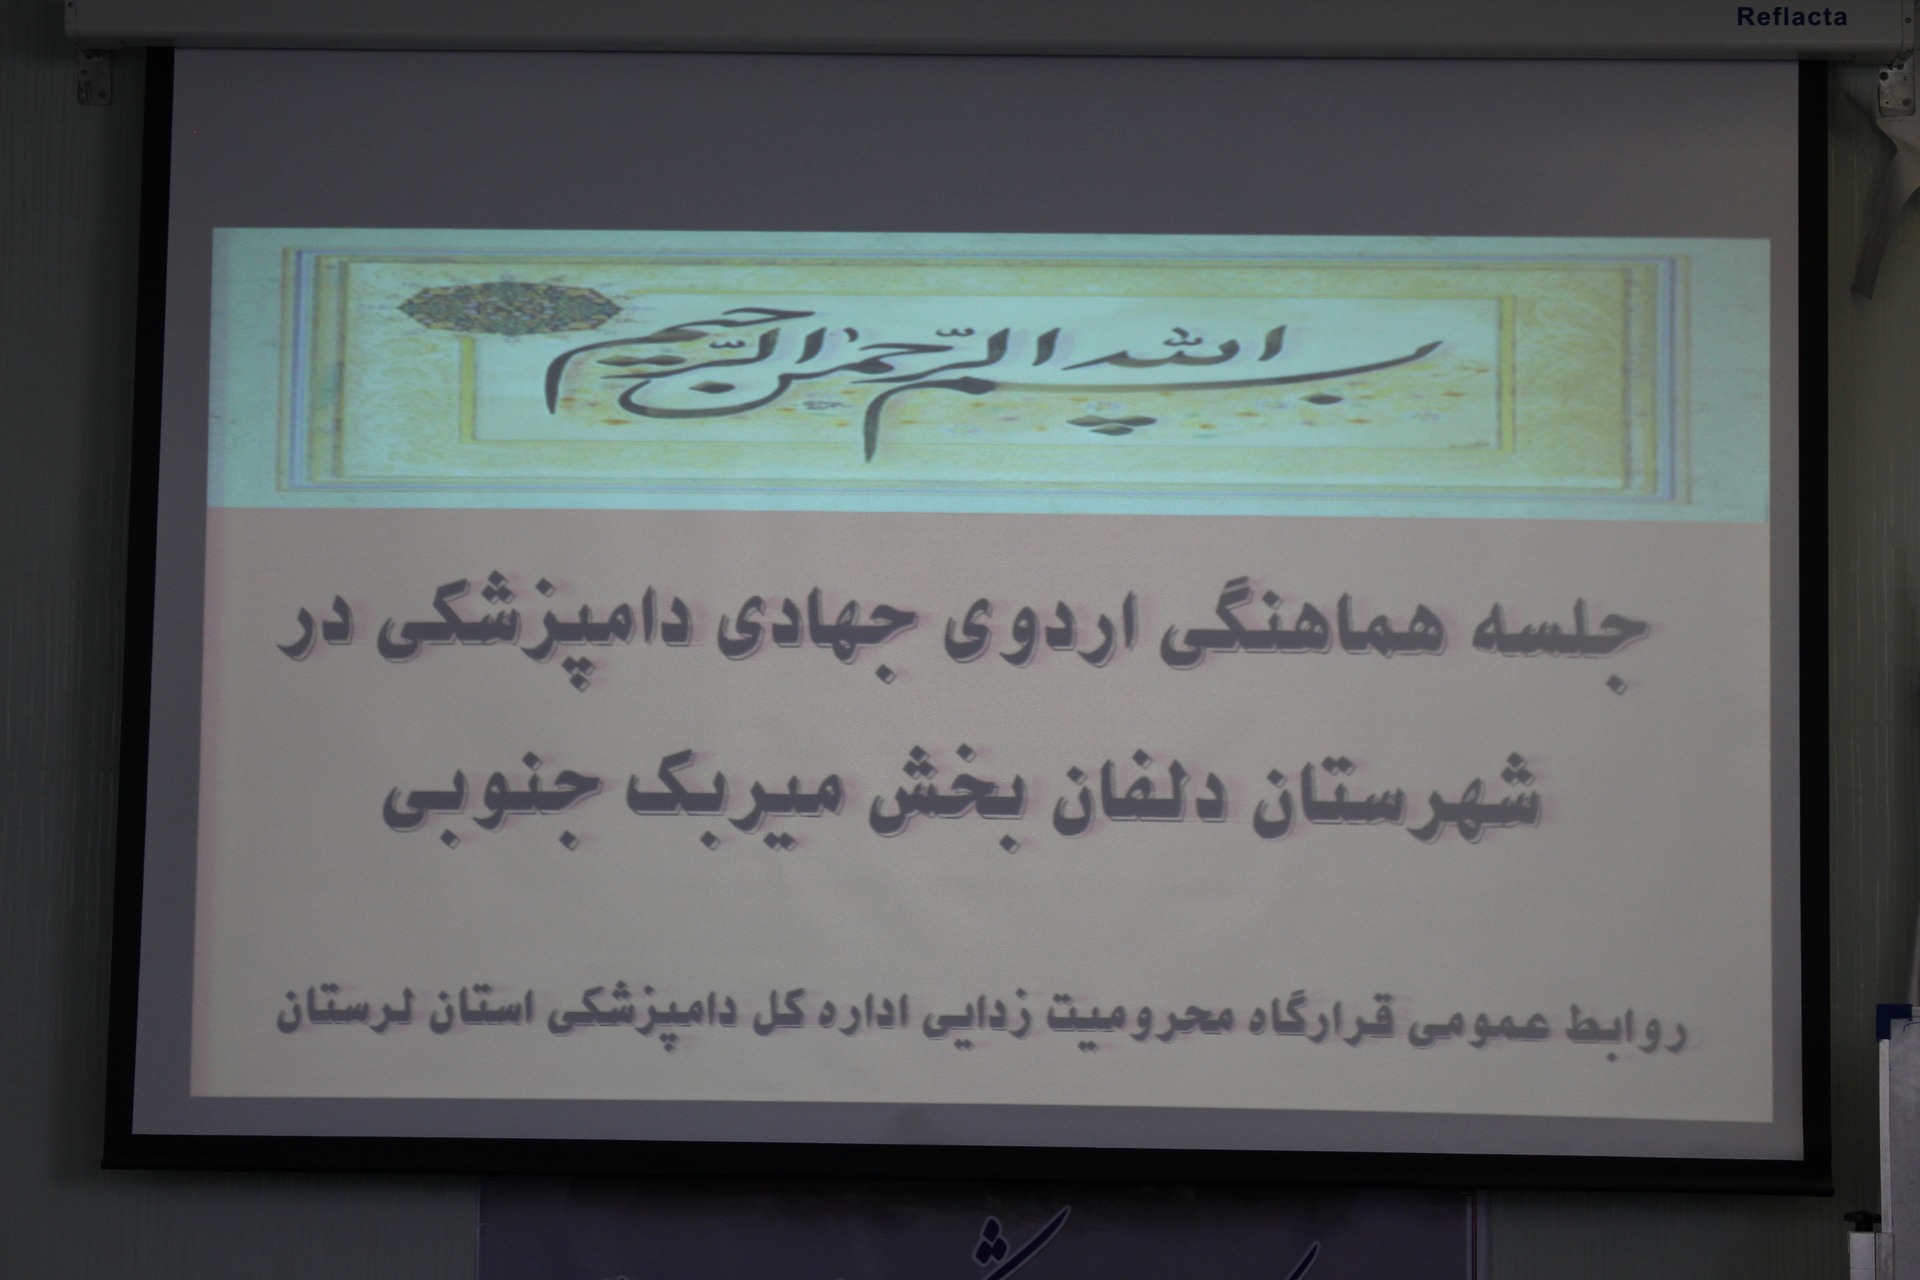 Reflacta
بسم الله الرحمن الرحیم
جلسه هماهنگی اردوی جهادی دامپزشکی در
شهرستان دلفان بخش میربک جنوبی
روابط عمومی قرارگاه محرومیت زدایی اداره کل دامپزشکی استان لرستان